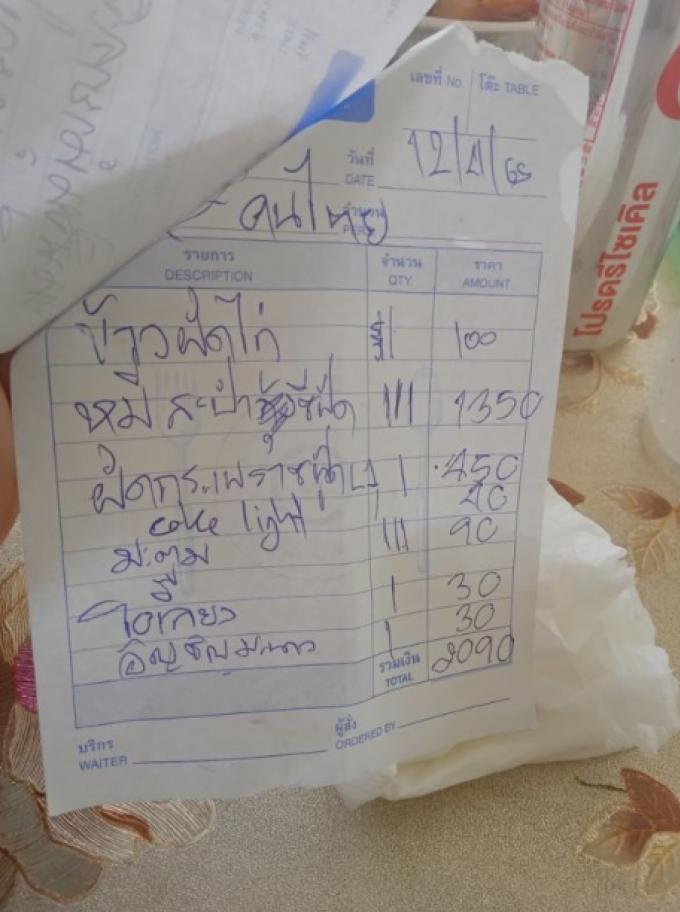 เลขที่ No. โต๊ะ TABLE
วันที่ DATE 12/4/65
คนไทย
จำนวน
รายการ DESCRIPTION จำนวน QTY. ราคา AMOUNT
ข้าวผัดไก่ 100
หมี่ สะปำ ซีฟู้ด III 1350
ผัดกระเพราซีฟู้ด I 450
coke light 40
มะตูม III 90
โอเลี้ยง I 30
อัญชัญมะนาว I 30
รวมเงิน TOTAL 2090
บริกร WAITER ผู้สั่ง ORDERED BY
โปรดรีไซเคิล